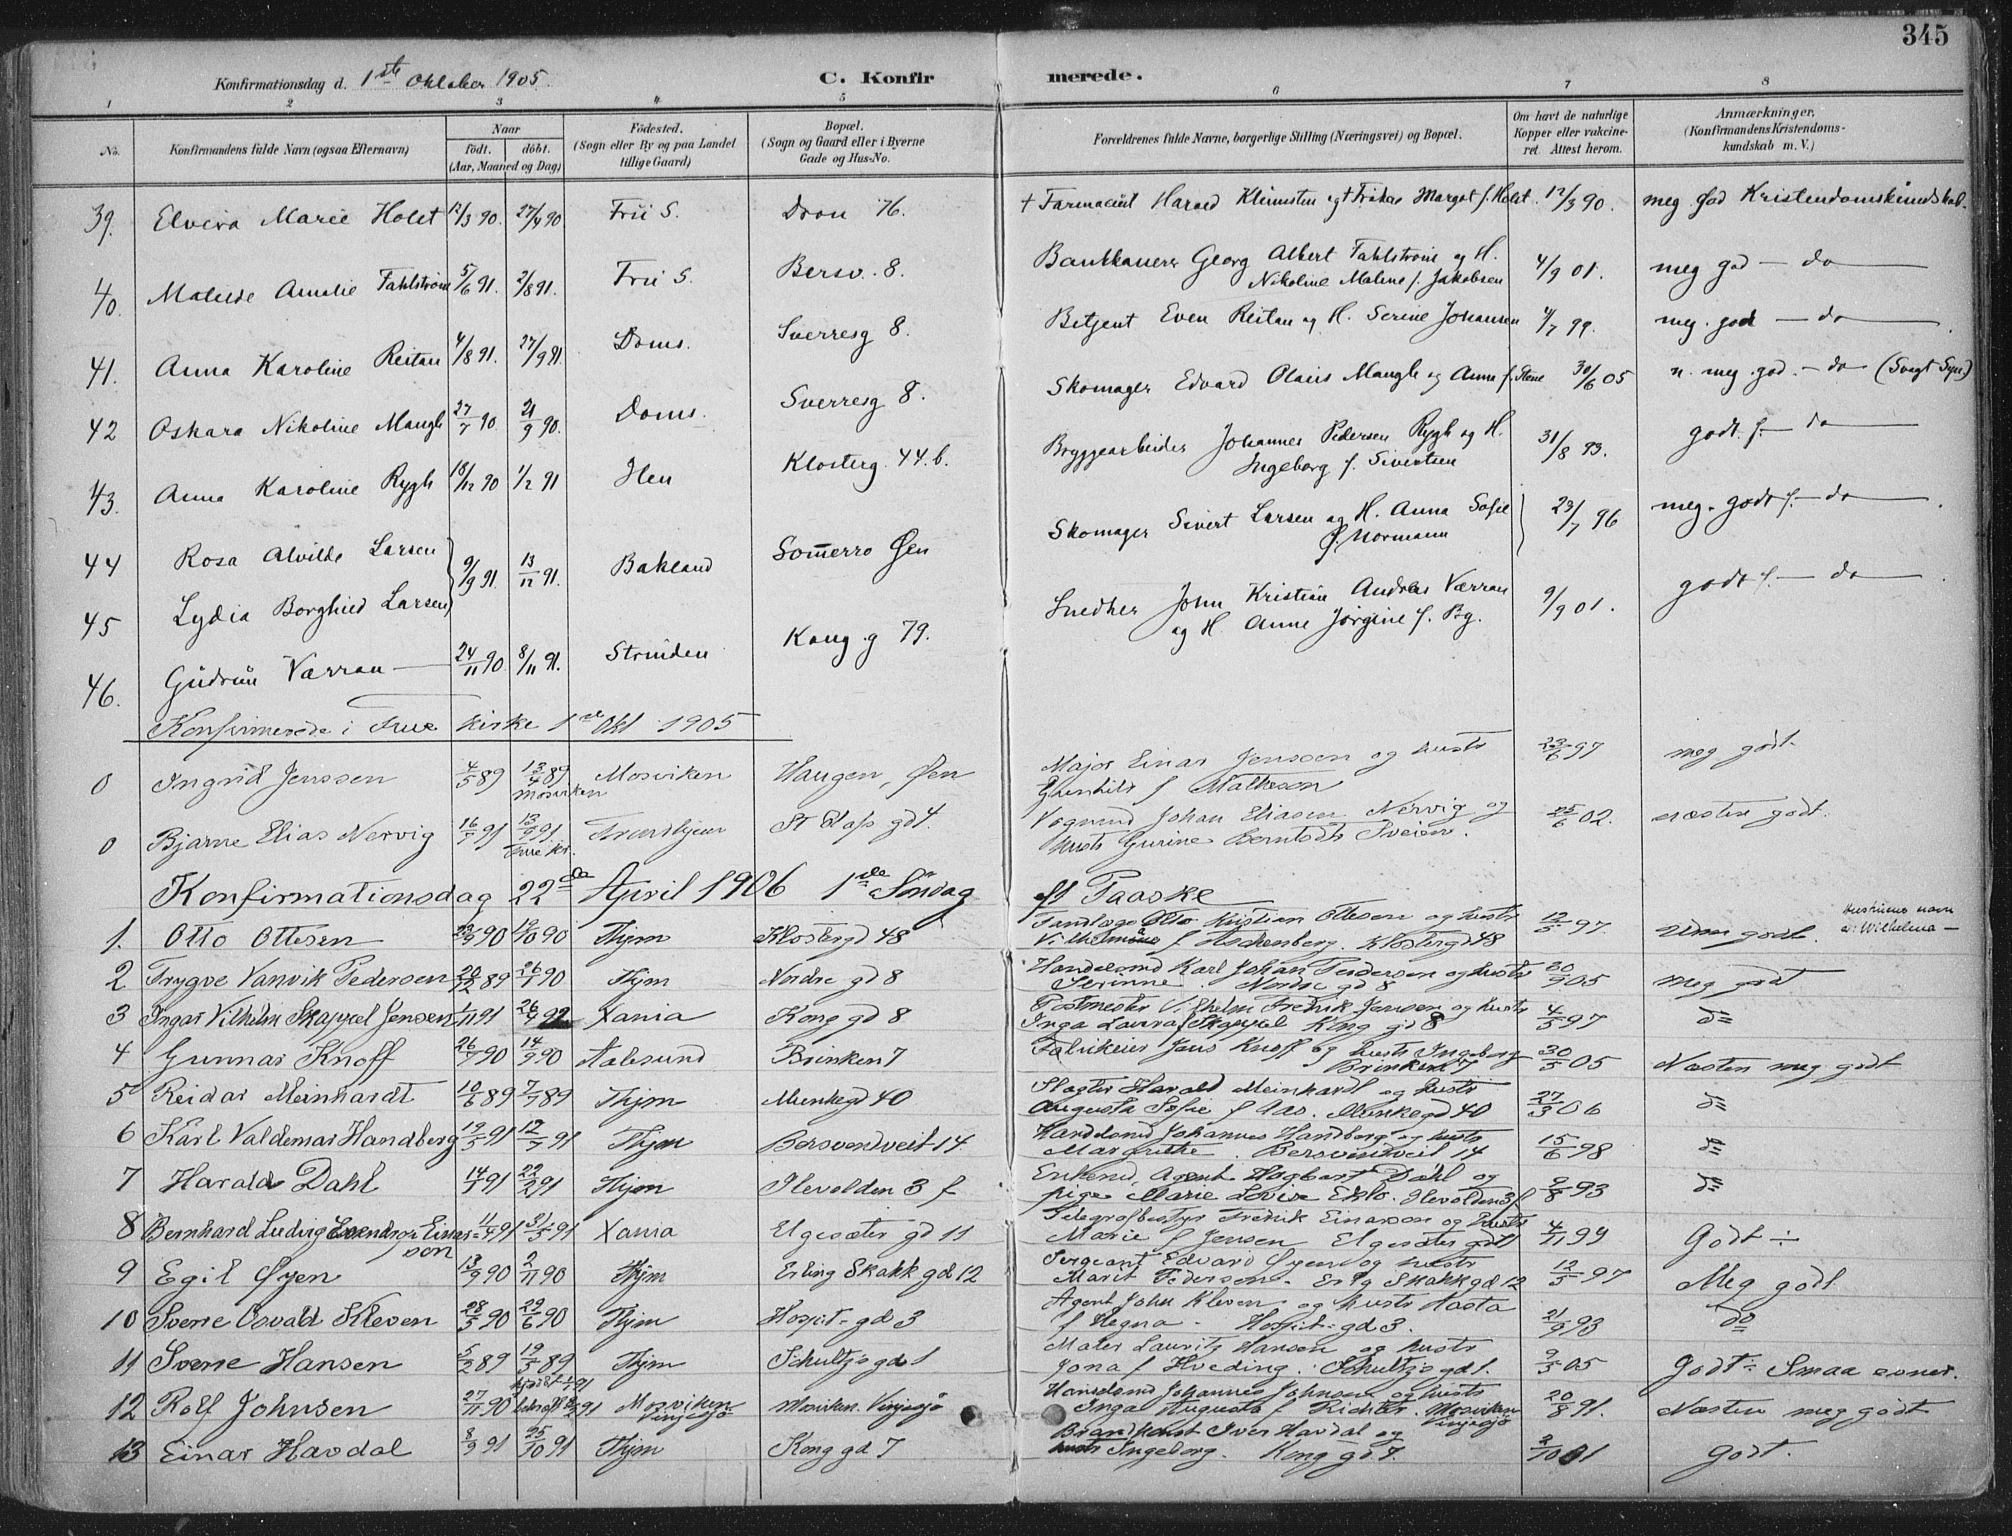 345
Konfirmationsdag d. 1ste Oktober 1905. C. Konfirmerede.
1 2 3 4 5 6 7 8
No. Konfirmandens fulde Navn (ogsaa Efternavn) Naar født. døbt. (Aar, Maaned og Dag) Fødested. (Sogn eller By og paa Landet tillige Gaard) Bopæl. (Sogn og Gaard eller i Byerne Gade og Hus-No. Forældrenes fulde Navne, borgerlige Stilling (Næringsvei) og Bopæl. Om havt de naturlige Kopper eller vakcineret. Attest herom. Anmærkninger. (Konfirmandens Kristendomskundskab m. V.)
39. Elvira Marie Holst 12/3 90. 27/4 90 Frue S. Dron 76. + Farmaceut Harald Klemsten og + Frøken Margot f. Holst 12/3 90. meg. god Kristendomskundskab.
40. Matilde Amalie Fahlstrøm 5/6 91. 2/8 91. Frue S. Bersv. 8. Bankkasserer Georg Albert Fahlstrøm og H.
Nikoline Malene f. Jakobsen 4/9 01. meg god — do —
41. Anna Karoline Reitan 4/8 91. 27/9 91. Doms. Sverresg 8. Betjent Even Reitan og H. Serine Johansen 4/7 99. meg. god — do —
42 Oskara Nikoline Maugh 27/7 90 21/9 90. Doms. Sverresg 8. Skomager Edvard Olaus Maugh og Anna f. Stene 30/6 05 n. meg. god. — do (Svagt Syn)
43. Anna Karoline Rygh 18/12 90 1/2 91 Ilen Klosterg. 44. b. Bryggearbeider Johannes Pedersen Rygh og H.
Ingeborg f. Sivertsen 31/8 93. godt f. — do —
44 Rosa Alvilde Larsen 9/9 91. 13/12 91. Bakland Sommerro Øen Skomager Sivert Larsen og H. Anna Sofie
f. Normann 23/7 96 meg. godt f. — do —
45 Lydia Borghild Larsen
46. Gudrun Værran — 24/11 90 8/11 91. Strinden Kong. g 79. Snedker John Kristian Andreas Værran
og H. Anne Jørgine f. Bg. 9/9 01. godt f. — do —
Konfirmerede i Frue kirke 1ste Okt 1905
0 Ingrid Jenssen 4/5 89 13/4 89 Mosviken Mosviken Haugen, Øen Major Einar Jenssen og hustr
Gunhild f Matheson 23/6 97 meg godt.
0 Bjarne Elias Nervig 16/7 91 13/9 91. Frue kr. Trondhjem St Olafs gd 4. Vognmd Johan Eliasen Nervig og
hustr Gurine Berntsdt Sveien. 25/6 02. næsten godt.
Konfirmationsdag 22de April 1906 1ste Søndag ef Paaske
1. Otto Ottesen 23/9 90 19/10 90 Thjm Klostergd 48 Tandlæge Otto Kristian Ottesen og hustr
f Aschenberg. Klostergd 48 12/5 97. godt. Hustruens navn er Wilhelma —
2 Trygve Vanvik Pedersen 20/12 89 26/1 90 Thjm Nordre gd 8 Handelsmd Karl Johan Pedersen og hustr
Serinne. Nordre gd 8 30/9 05 meg godt
3 Ingar Vilhelm Skappel Jensen 1/11 91 26/4 92 Xania Kong gd 8 Postmester Vilhelm Fredrik Jensen og hustr
Inga Laura f Skappel Kong gd 8 4/5 97 do
4 Gunnar Knoff 26/7 90 14/9 90 Aalesund Brinken 7 Fabrikeier Jens Knoff og hustr Ingeborg
Brinken 7 30/5 05 Næsten meg godt
5 Reidar Meinhardt 10/6 89 7/7 89 Thjm Munkegd 40 Slagter Harald Meinhardt og hustr
Augusta Sofie f Aas. Munkegd 40 27/3 06 do
6 Karl Valdemar Handberg 19/5 91 12/7 91 Thjm Bersvendveit 14. Handelsmd Johannes Handberg og hustr
Margrethe. Bersvendveit 14 15/6 98 do
7 Harald Dahl 14/1 91 22/2 91 Thjm Ilevolden 3 f Enkemd, Agent Hagbart Dahl og
pige Marie Lovise Eklo. Ilevolden 3 f 2/8 93 do
8 Bernhard Ludvig Einarson 11/4 91 31/5 91 Xania Elgesæter gd 11 Telegrafbestyr Fredrik Einarson og hustr
Marie f Jensen Elgesæter gd 11 4/11 99 Godt ÷
9 Egil Øyen 13/9 90 2/11 90 Thjm Erling Skakk gd 12 Sergeant Edvard Øyen og hustr
Marit Pedersen. Erlg Skakk gd 12 12/5 97 Meg godt
10 Sverre Osvald Kleven 28/5 90 29/6 90 Thjm Hospit. gd 3 Agent John Kleven og hustr Hasta
f Hegna. Hospit. gd 3. 21/9 93 do
11 Sverre Hansen 5/2 89 19/5 89 Thjm Schultzs gd 1 Maler Lauritz Hansen og hustr
Jona f Hveding. Schultzs gd 1. 9/5 05 Godt ÷ Smaa evner.
12 Rolf Johnsen 27/11 90 Mosviken Vinjesjø Mosviken. Vinjesjø Handelsmd Johannes Johnsen og hustr
Inga Augusta f Richter. Mosviken Vinjesjø 20/8 91. Næsten meg godt
13 Einar Havdal 8/9 91 25/10 91 Thjm Kong gd 7 Iver Havdal og
hustr Ingeborg. Kong gd 7. 2/10 01 Godt.